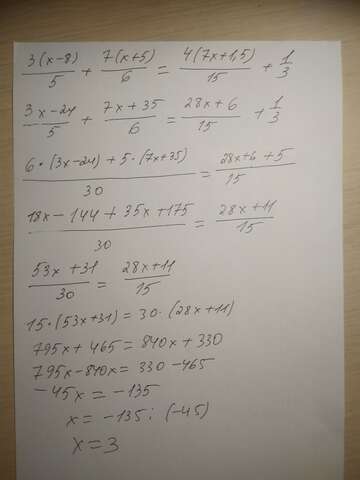 3(x-8)/5 + 7(x+5)/6 = 4(7x+1,5)/15 + 1/3
3x-24/5 + 7x+35/6 = 28x+6/15 + 1/3
6·(3x-24)+5·(7x+35)/30 = 28x+6+5/15
18x-144+35x+175/30 = 28x+11/15
53x+31/30 = 28x+11/15
15·(53x+31)=30·(28x+11)
795x+465=840x+330
795x-840x=330-465
-45x=-135
x=-135:(-45)
x=3